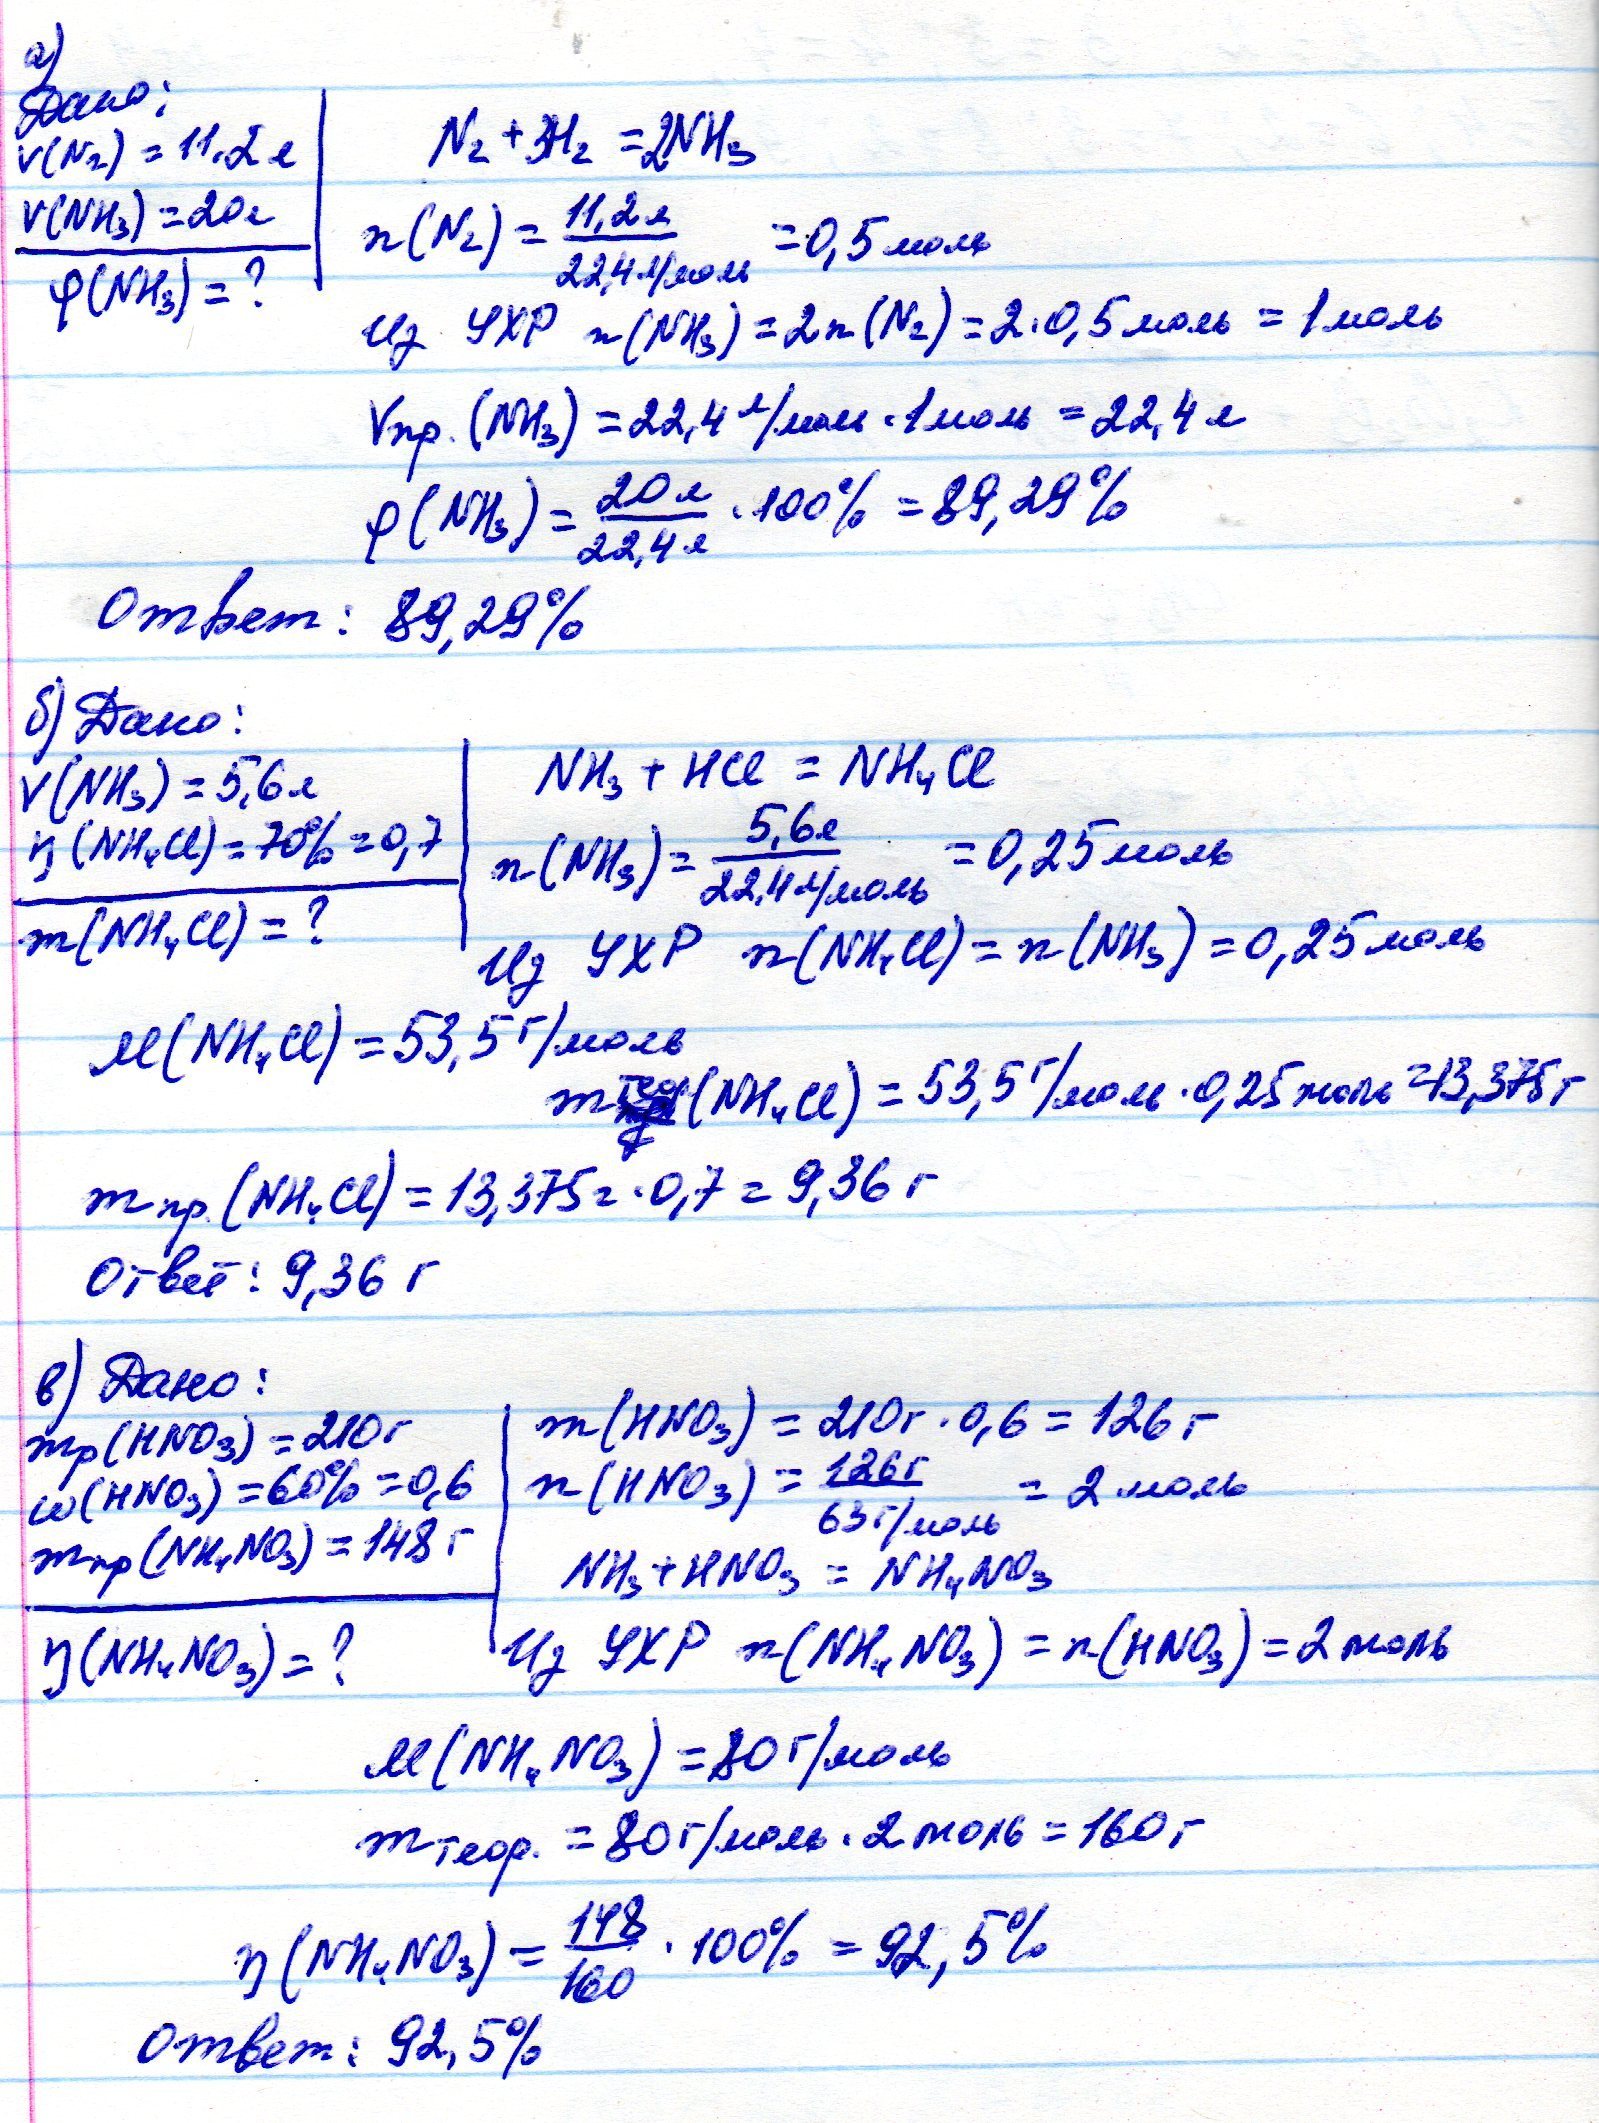 а)
Дано:
V(N₂) = 11,2 л
V(NH₃) = 20 л
φ(NH₃) = ?
N₂ + 3H₂ = 2NH₃
n(N₂) = 11,2 л / 22,4 л/моль = 0,5 моль
Из УХР n(NH₃) = 2n(N₂) = 2·0,5 моль = 1 моль
Vпр.(NH₃) = 22,4 л/моль · 1 моль = 22,4 л
φ(NH₃) = 20 л / 22,4 л · 100% = 89,29%
Ответ: 89,29%
б) Дано:
V(NH₃) = 5,6 л
η(NH₄Cl) = 70% = 0,7
m(NH₄Cl) = ?
NH₃ + HCl = NH₄Cl
n(NH₃) = 5,6 л / 22,4 л/моль = 0,25 моль
Из УХР n(NH₄Cl) = n(NH₃) = 0,25 моль
M(NH₄Cl) = 53,5 г/моль
mтеор(NH₄Cl) = 53,5 г/моль · 0,25 моль = 13,375 г
mпр.(NH₄Cl) = 13,375 г · 0,7 = 9,36 г
Ответ: 9,36 г
в) Дано:
mр(HNO₃) = 210 г
ω(HNO₃) = 60% = 0,6
mпр(NH₄NO₃) = 148 г
η(NH₄NO₃) = ?
m(HNO₃) = 210 г · 0,6 = 126 г
n(HNO₃) = 126 г / 63 г/моль = 2 моль
NH₃ + HNO₃ = NH₄NO₃
Из УХР n(NH₄NO₃) = n(HNO₃) = 2 моль
M(NH₄NO₃) = 80 г/моль
mтеор. = 80 г/моль · 2 моль = 160 г
η(NH₄NO₃) = 148 / 160 · 100% = 92,5%
Ответ: 92,5%